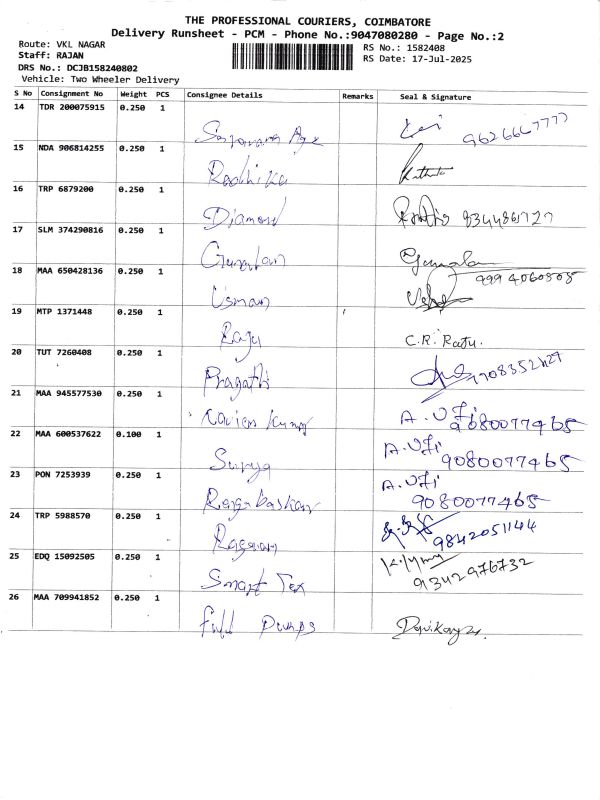 THE PROFESSIONAL COURIERS, COIMBATORE
Delivery Runsheet - PCM - Phone No.:9047080280 - Page No.:2
Route: VKL NAGAR
RS No.: 1582408
Staff: RAJAN
RS Date: 17-Jul-2025
DRS No.: DCJB158240802
Vehicle: Two Wheeler Delivery
S No Consignment No Weight PCS Consignee Details Remarks Seal & Signature
14 TDR 200075915 0.250 1
15 NDA 906814255 0.250 1 Radhika
16 TRP 6879200 0.250 1 Diamond
17 SLM 374290816 0.250 1 Gunalan
18 MAA 650428136 0.250 1 Usman
19 MTP 1371448 0.250 1 Raju C.R. Raju.
20 TUT 7260408 0.250 1 Pragathi
21 MAA 945577530 0.250 1 9080077465
22 MAA 600537622 0.100 1 Surya 9080077465
23 PON 7253939 0.250 1 9080077465
24 TRP 5988570 0.250 1 9842051144
25 EDQ 15092505 0.250 1 Smart Tex 9342976732
26 MAA 709941852 0.250 1 Pumps